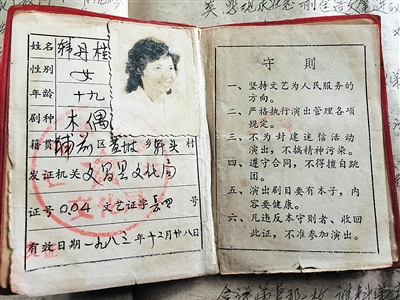 姓名 韩丹桂
性别 女
年龄 十九
剧种 木偶
籍贯 辅前区 乡 头村
发证机关 文昌县文化局
证号 004 文艺证字 号
有效日期 一九八三年十二月廿八日
守则
一、坚持文艺为人民服务的
方向。
二、严格执行演出管理各项
规定。
三、不为封建迷信活动
演出，不搞精神污染。
四、遵守合同，不得擅自跳
团。
五、演出剧目要有本子，内
容要健康。
六、凡违反本守则者、收回
此证，不准参加演出。